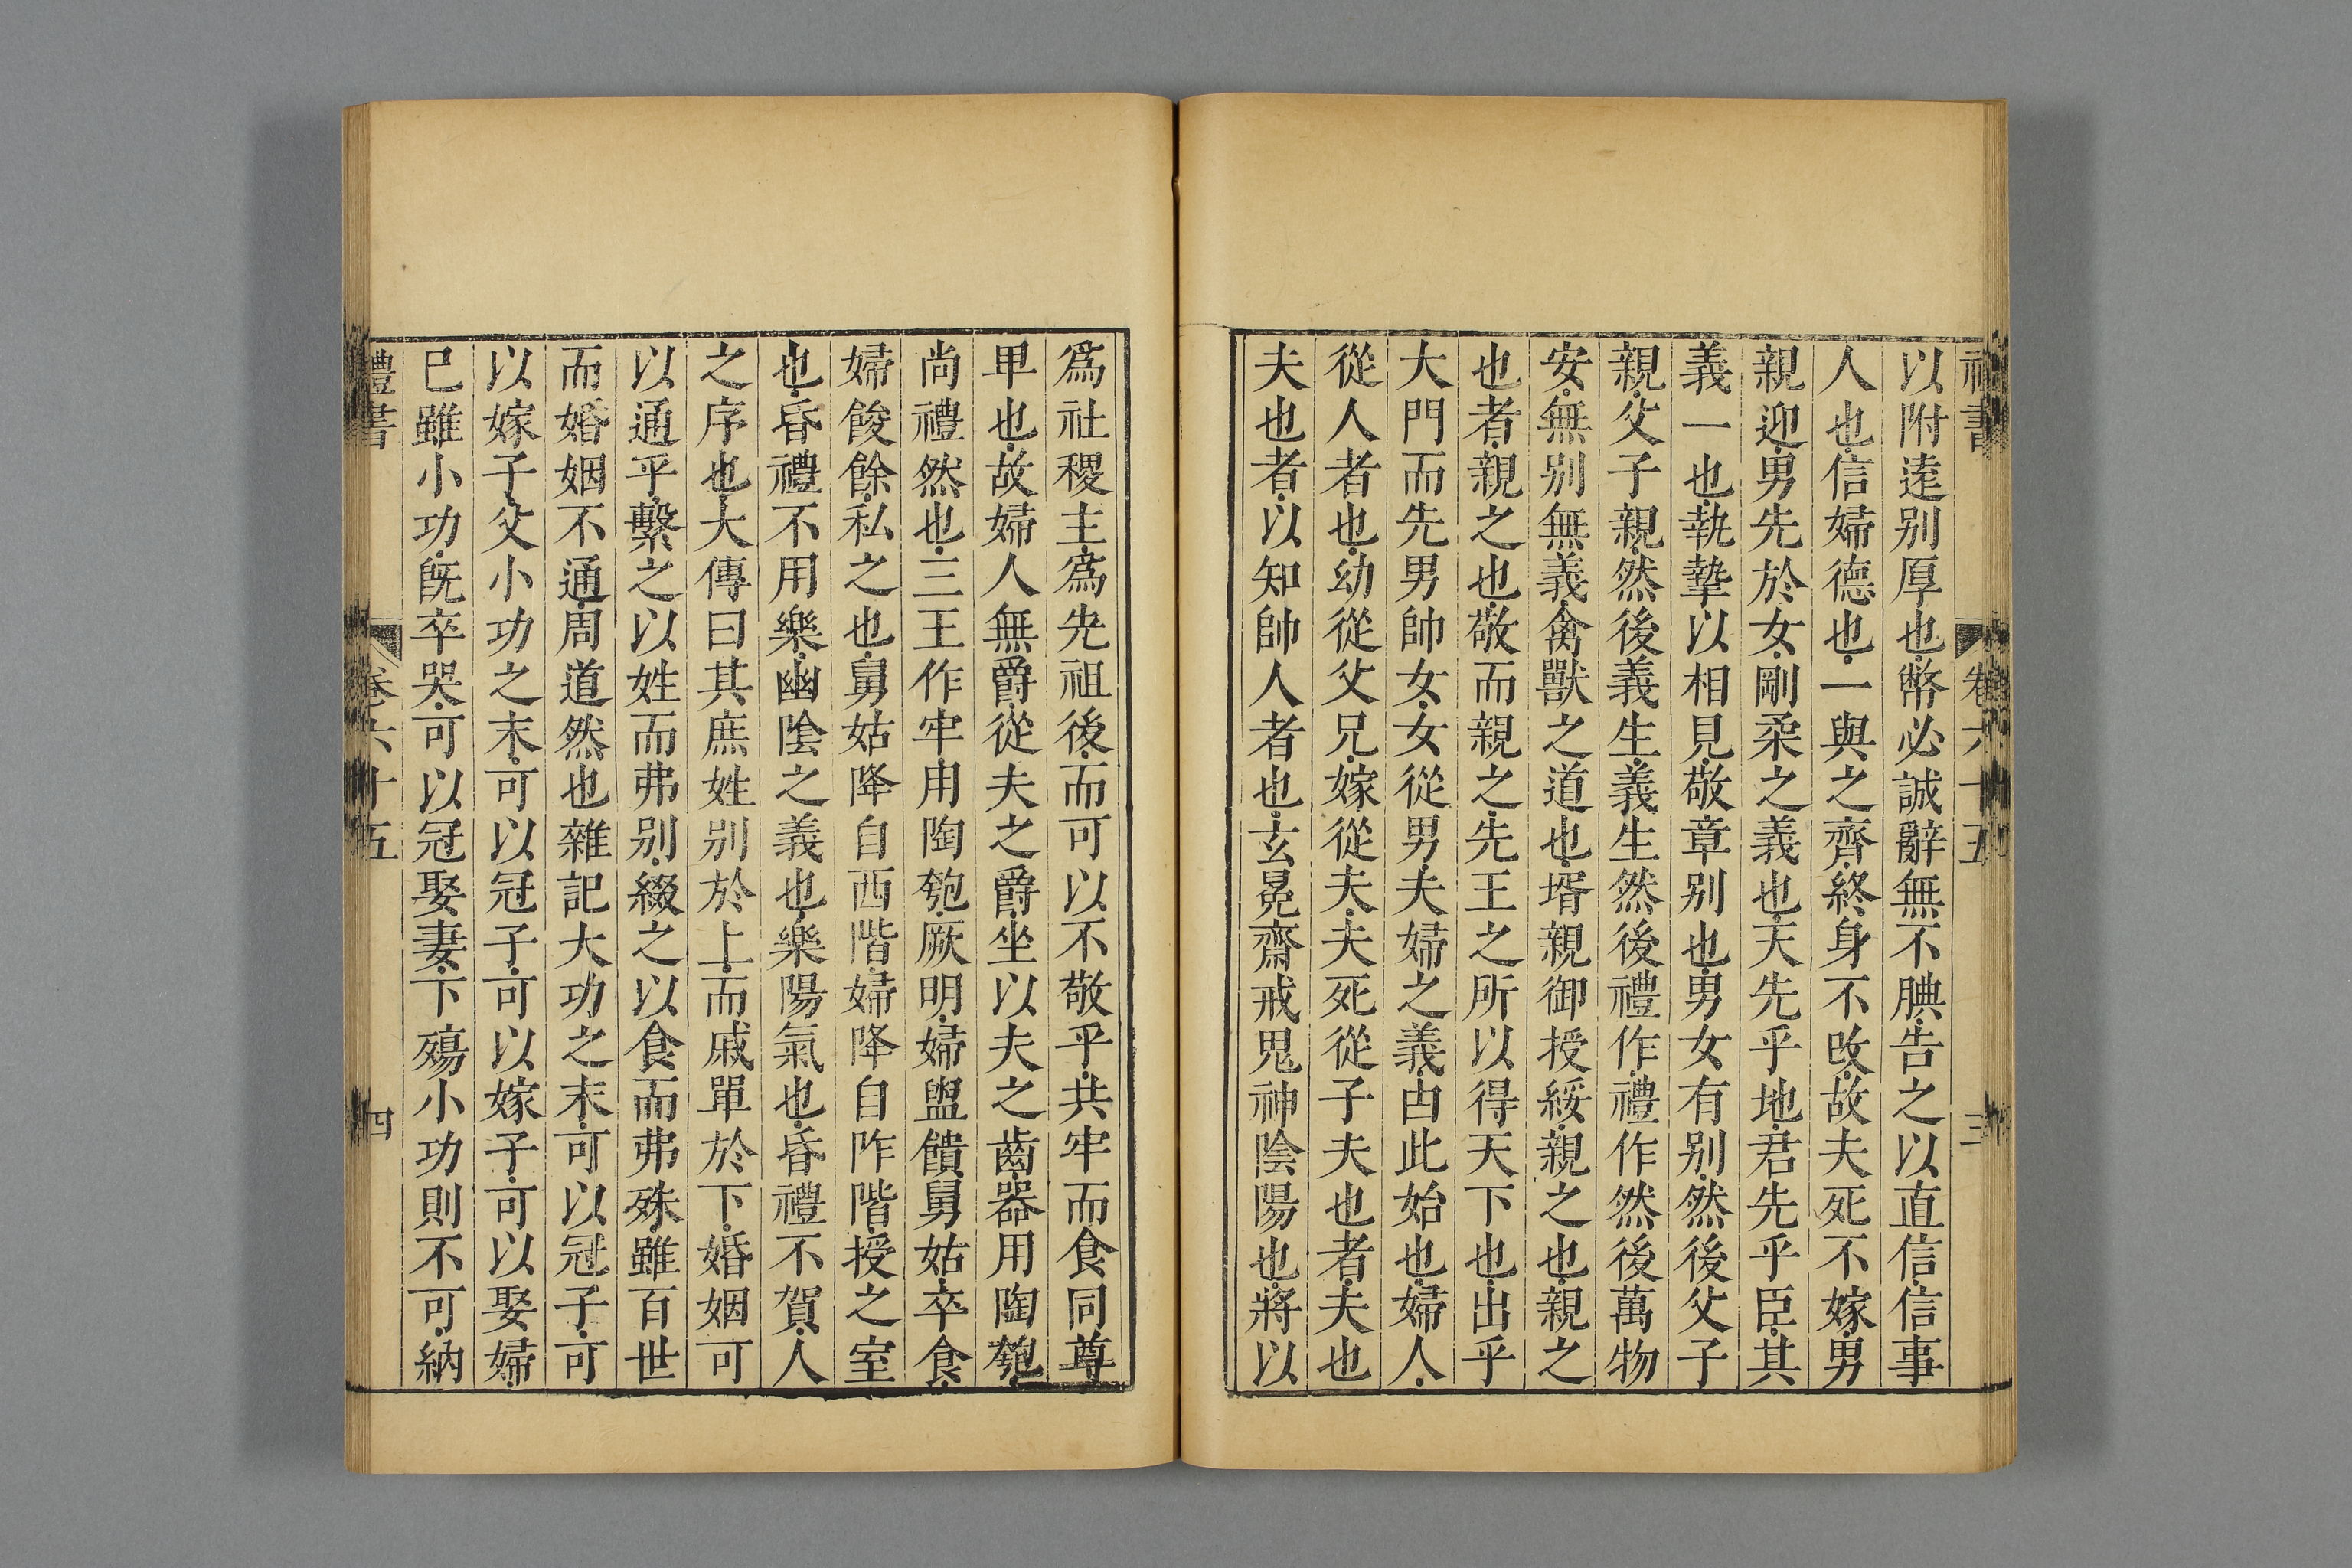 禮書 卷六十五 三
以附遠别厚也幣必誠辭無不腆告之以直信信事
人也信婦德也一與之齊終身不改故夫死不嫁男
親迎男先於女剛柔之義也天先乎地君先乎臣其
義一也執摯以相見敬章别也男女有别然後父子
親父子親然後義生義生然後禮作禮作然後萬物
安無别無義禽獸之道也壻親御授綏親之也親之
也者親之也敬而親之先王之所以得天下也出乎
大門而先男帥女女從男夫婦之義由此始也婦人
從人者也幼從父兄嫁從夫夫死從子夫也者夫也
夫也者以知帥人者也玄冕齋戒鬼神陰陽也將以
爲社稷主爲先祖後而可以不敬乎共牢而食同尊
卑也故婦人無爵從夫之爵坐以夫之齒器用陶匏
尚禮然也三王作牢用陶匏厥明婦盥饋舅姑卒食
婦餕餘私之也舅姑降自西階婦降自阼階授之室
也昏禮不用樂幽陰之義也樂陽氣也昏禮不賀人
之序也大傳曰其庶姓别於上而戚單於下婚姻可
以通乎繫之以姓而弗别綴之以食而弗殊雖百世
而婚姻不通周道然也雜記大功之末可以冠子可
以嫁子父小功之末可以冠子可以嫁子可以娶婦
已雖小功旣卒哭可以冠娶妻下殤小功則不可納
禮書 卷六十五 四